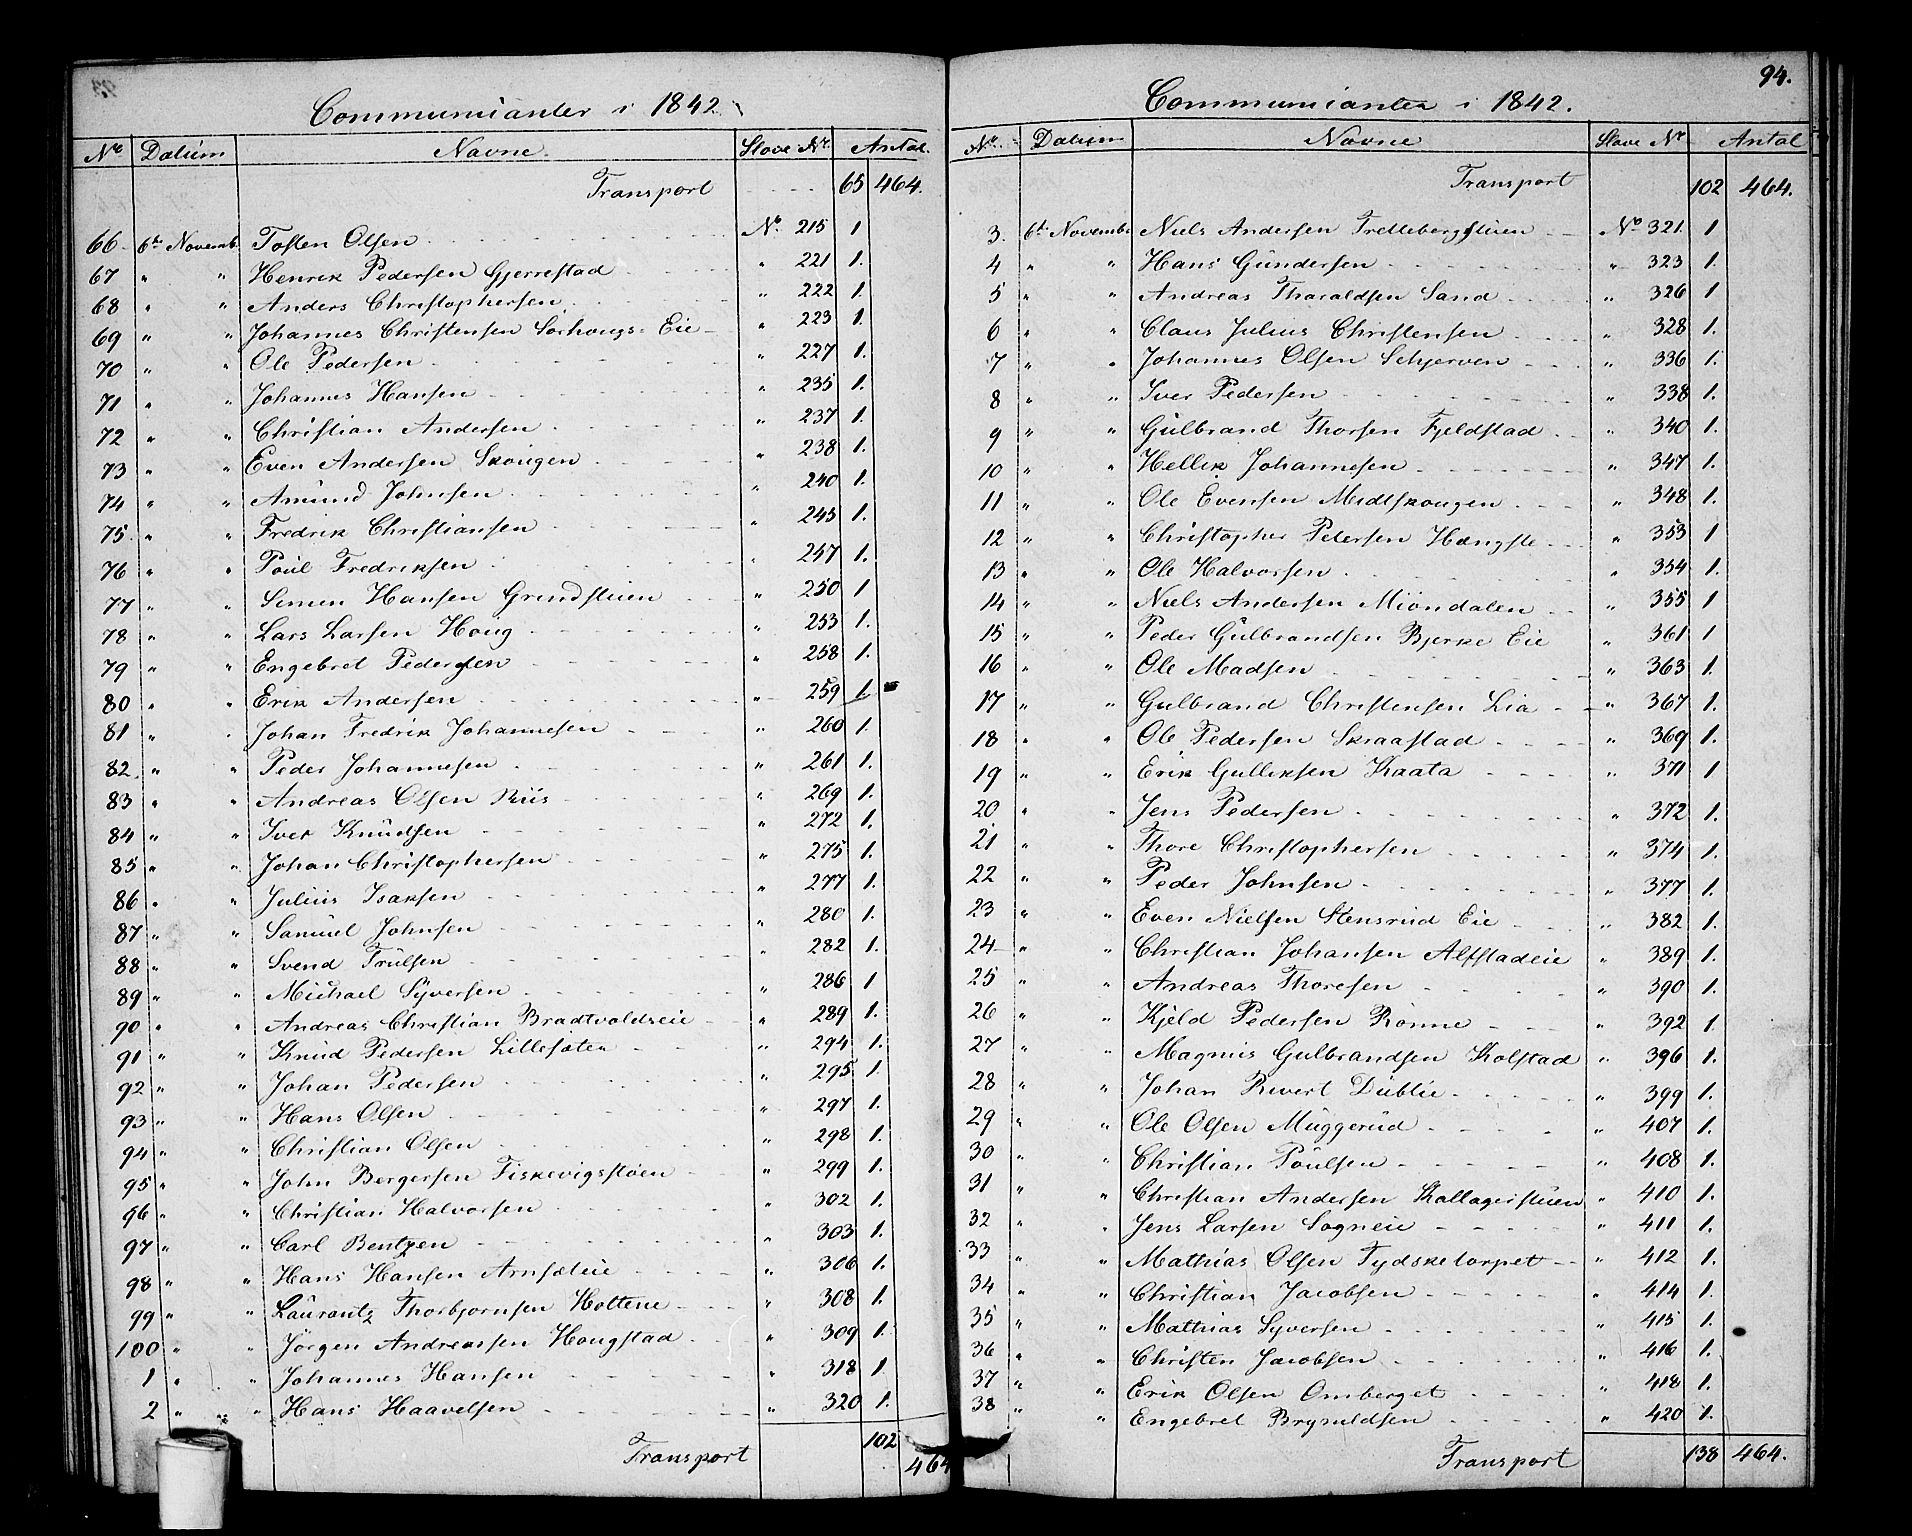 Communianter i 1842.
No Datum Navne. Slave No. Antal.
Transport 65 464.
66. 6te Novemb. Tosten Olsen No. 215 1
67 " " Henrik Pedersen Gjerrestad " 221 1.
68 " " Anders Christophersen " 222 1.
69 " " Johannes Christensen Sørhougs-Eie " 223 1.
70 " " Ole Pedersen " 227 1.
71 " " Johannes Hansen " 235 1.
72 " " Christian Andersen " 237 1.
73 " " Even Andersen Skougen " 238 1.
74 " " Amund Johnsen " 240 1.
75. " " Fredrik Christiansen " 245 1.
76 " " Poul Fredriksen " 247 1.
77 " " Simen Hansen Grindstuen " 250 1
78 " " Lars Larsen Houg " 253 1.
79 " " Engebret Pedersen " 258 1.
80 " " Erik Andersen " 259 1
81 " " Johan Fredrik Johannesen " 260 1.
82. " " Peder Johannesen " 261 1.
83 " " Andreas Olsen Riis " 269 1.
84 " " Iver Knudsen " 272 1.
85 " " Johan Christophersen " 275 1.
86 " " Julius Isaksen " 277 1.
87 " " Samuel Johnsen " 280 1.
88 " " Svend Trulsen " 282 1.
89 " " Michael Syversen " 286 1
90 " " Andreas Christian Bradtvoldseie " 289 1.
91 " " Knud Pedersen Lillesæter " 294 1.
92 " " Johan Pedersen " 295 1.
93 " " Hans Olsen " 297 1.
94 " " Christian Olsen " 298 1.
95 " " John Bergersen Fiskevigstøen " 299 1.
96 " " Christian Halvorsen " 302 1.
97 " " Carl Bentzen " 303 1.
98 " " Hans Hansen Arnsæteie " 306 1.
99 " " Laurantz Thorbjørnsen Hottene " 308 1.
100 " " Jørgen Andreassen Hougstad " 309 1.
1 " " Johannes Hansen " 318 1
2 " " Hans Haavelsen " 320 1.
Transport 102 464
94.
Communianter i 1842.
No. Datum Navne Slave No Antal
Transport 102 464.
3. 6te Novembr Niels Andersen Tretteberg­stuen No 321. 1
4 " " Hans Gundersen " 323 1.
5 " " Andreas Tharaldsen Sand " 326 1
6 " " Claus Julius Christensen " 328 1.
7 " " Johannes Olsen Schjerven " 336 1.
8 " " Iver Pedersen " 338 1.
9 " " Gulbrand Thorsen Fjeldstad " 340 1.
10 " " Hellik Johannesen " 347 1.
11 " " Ole Evensen Midtskougen " 348 1.
12 " " Christopher Pedersen Hængsle " 353 1
13 " " Ole Halvorsen " 354 1.
14 " " Niels Andersen Miøndalen " 355 1
15 " " Peder Gulbrandsen Bjerke Eie " 361 1
16 " " Ole Madsen " 363 1.
17 " " Gulbrand Christensen Lia " 367 1.
18 " " Ole Pedersen Skraastad " 369 1.
19 " " Erik Gulliksen Kaata " 371 1
20. " " Jens Pedersen " 372 1.
21 " " Thore Christophersen " 374 1.
22 " " Peder Johnsen " 377 1.
23 " " Even Nielsen Stensrud Eie " 382 1.
24 " " Christian Johansen Alfstadeie " 389 1.
25 " " Andreas Thoresen " 390 1.
26 " " Kjeld Pedersen Rønne " 392 1.
27 " " Magnus Gulbrandsen Kolstad " 396 1.
28 " " Johan Rivert Dublie " 399 1.
29 " " Ole Olsen Muggerud " 407 1.
30 " " Christian Poulsen " 408 1.
31 " " Christian Andersen Kallagerstuen " 410 1.
32 " " Jens Larsen Sogneie " 411 1.
33 " " Mathias Olsen Tydsketorpet " 412 1.
34 " " Christian Jacobsen " 414 1.
35 " " Mathias Syversen " 415 1.
36 " " Christen Jacobsen " 416 1.
37 " " Erik Olsen Omberget " 418 1.
38 " " Engebret Brynildsen " 420 1.
Transport 138 464.